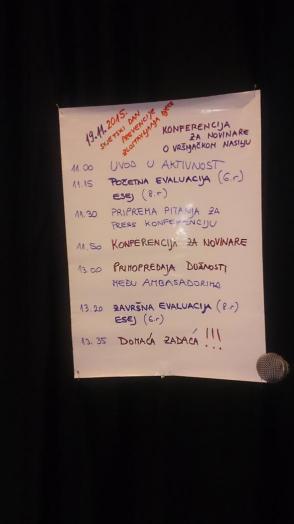 19.11.2015.
SVJETSKI DAN
PREVENCIJE
ZLOSTAVLJANJA DJECE
KONFERENCIJA
ZA NOVINARE
O VRŠNJAČKOM NASILJU
11.00 UVOD U AKTIVNOST
11.15 POČETNA EVALUACIJA (6.r)
ESEJ (8.r)
11.30 PRIPREMA PITANJA ZA
PRESS KONFERENCIJU
11.50 KONFERENCIJA ZA NOVINARE
13.00 PRIMOPREDAJA DUŽNOSTI
MEĐU AMBASADORIMA
13.20 ZAVRŠNA EVALUACIJA (8.r)
ESEJ (6.r)
13.35 DOMAĆA ZADAĆA !!!